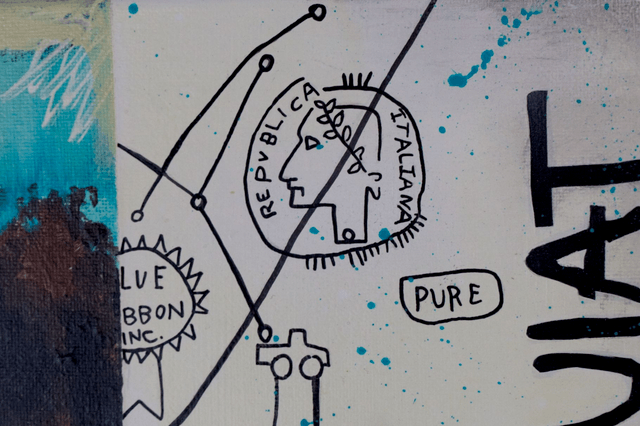 REPVBLICA ITALIANA
LUE
BBON
INC.
PURE
UIAT